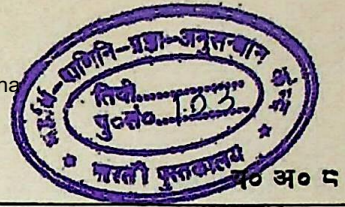 महर्षि-पाणिनि-प्रज्ञा-अनुसन्धान
तिथी..................
पु०सं०..103......
भारती पुस्तकालय
अ० ८